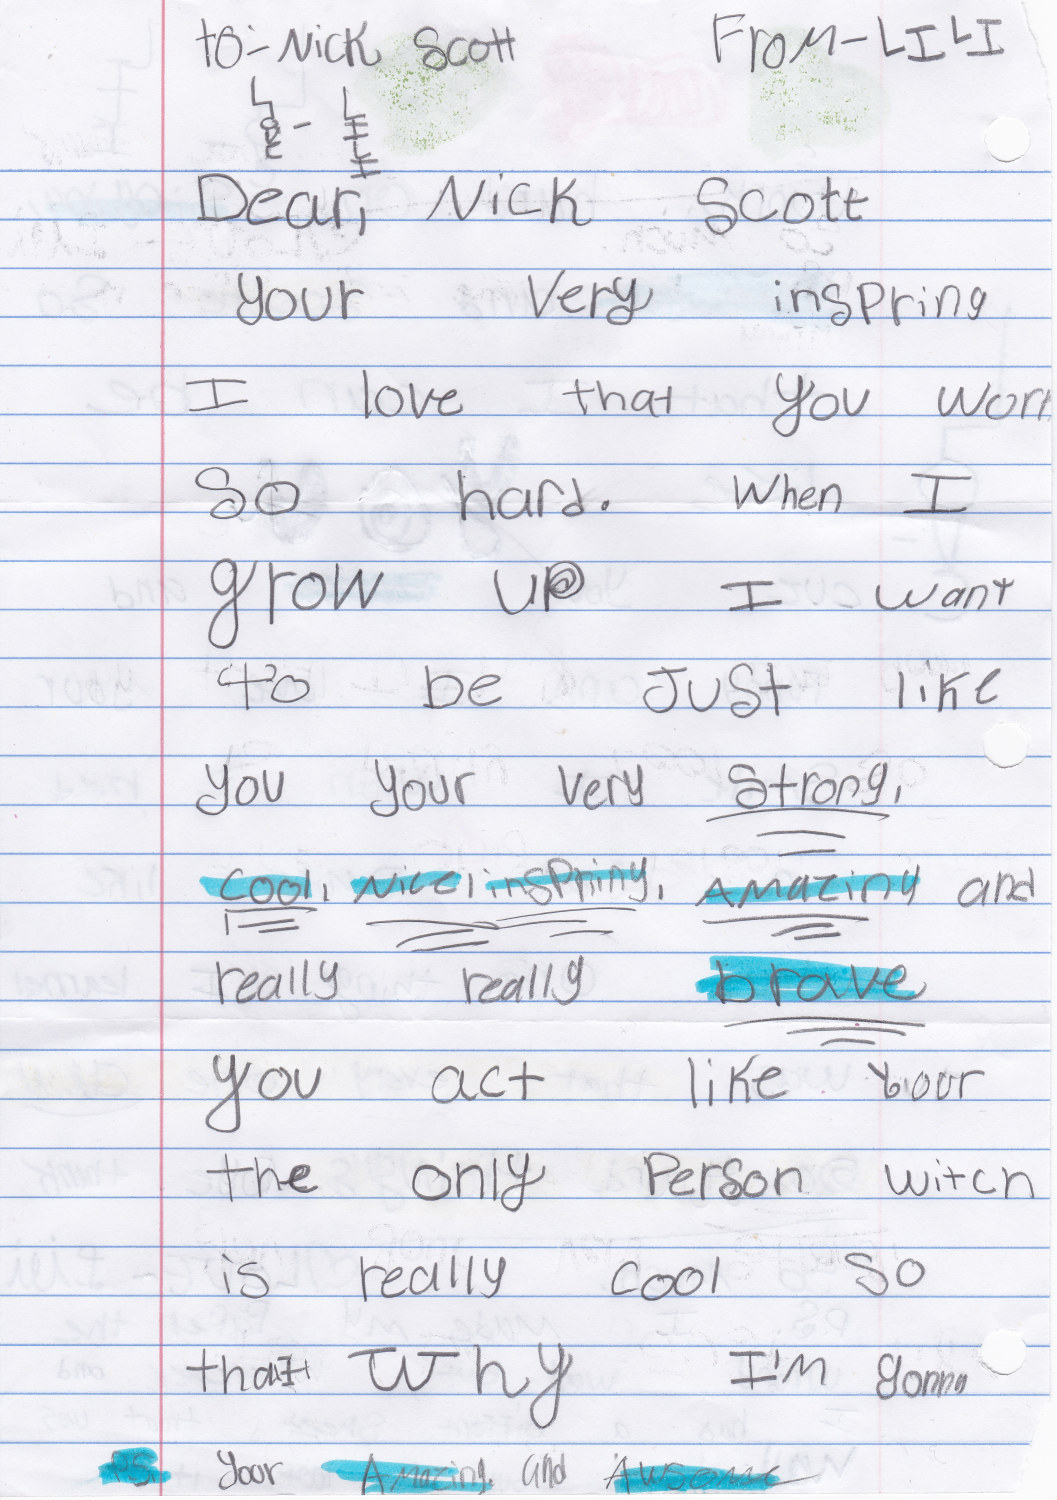 to:- Nick Scott From - LILI
Love - LILI
Dear, Nick Scott
your very inspring
I love that you work
So hard. When I
grow up I want
to be Just like
you your very Strong,
Cool, Nice, inspring, Amazing and
really really brave
you act like your
the only Person witch
is really cool so
that Why I'm gonna
P.S. your Amazing and Awsome